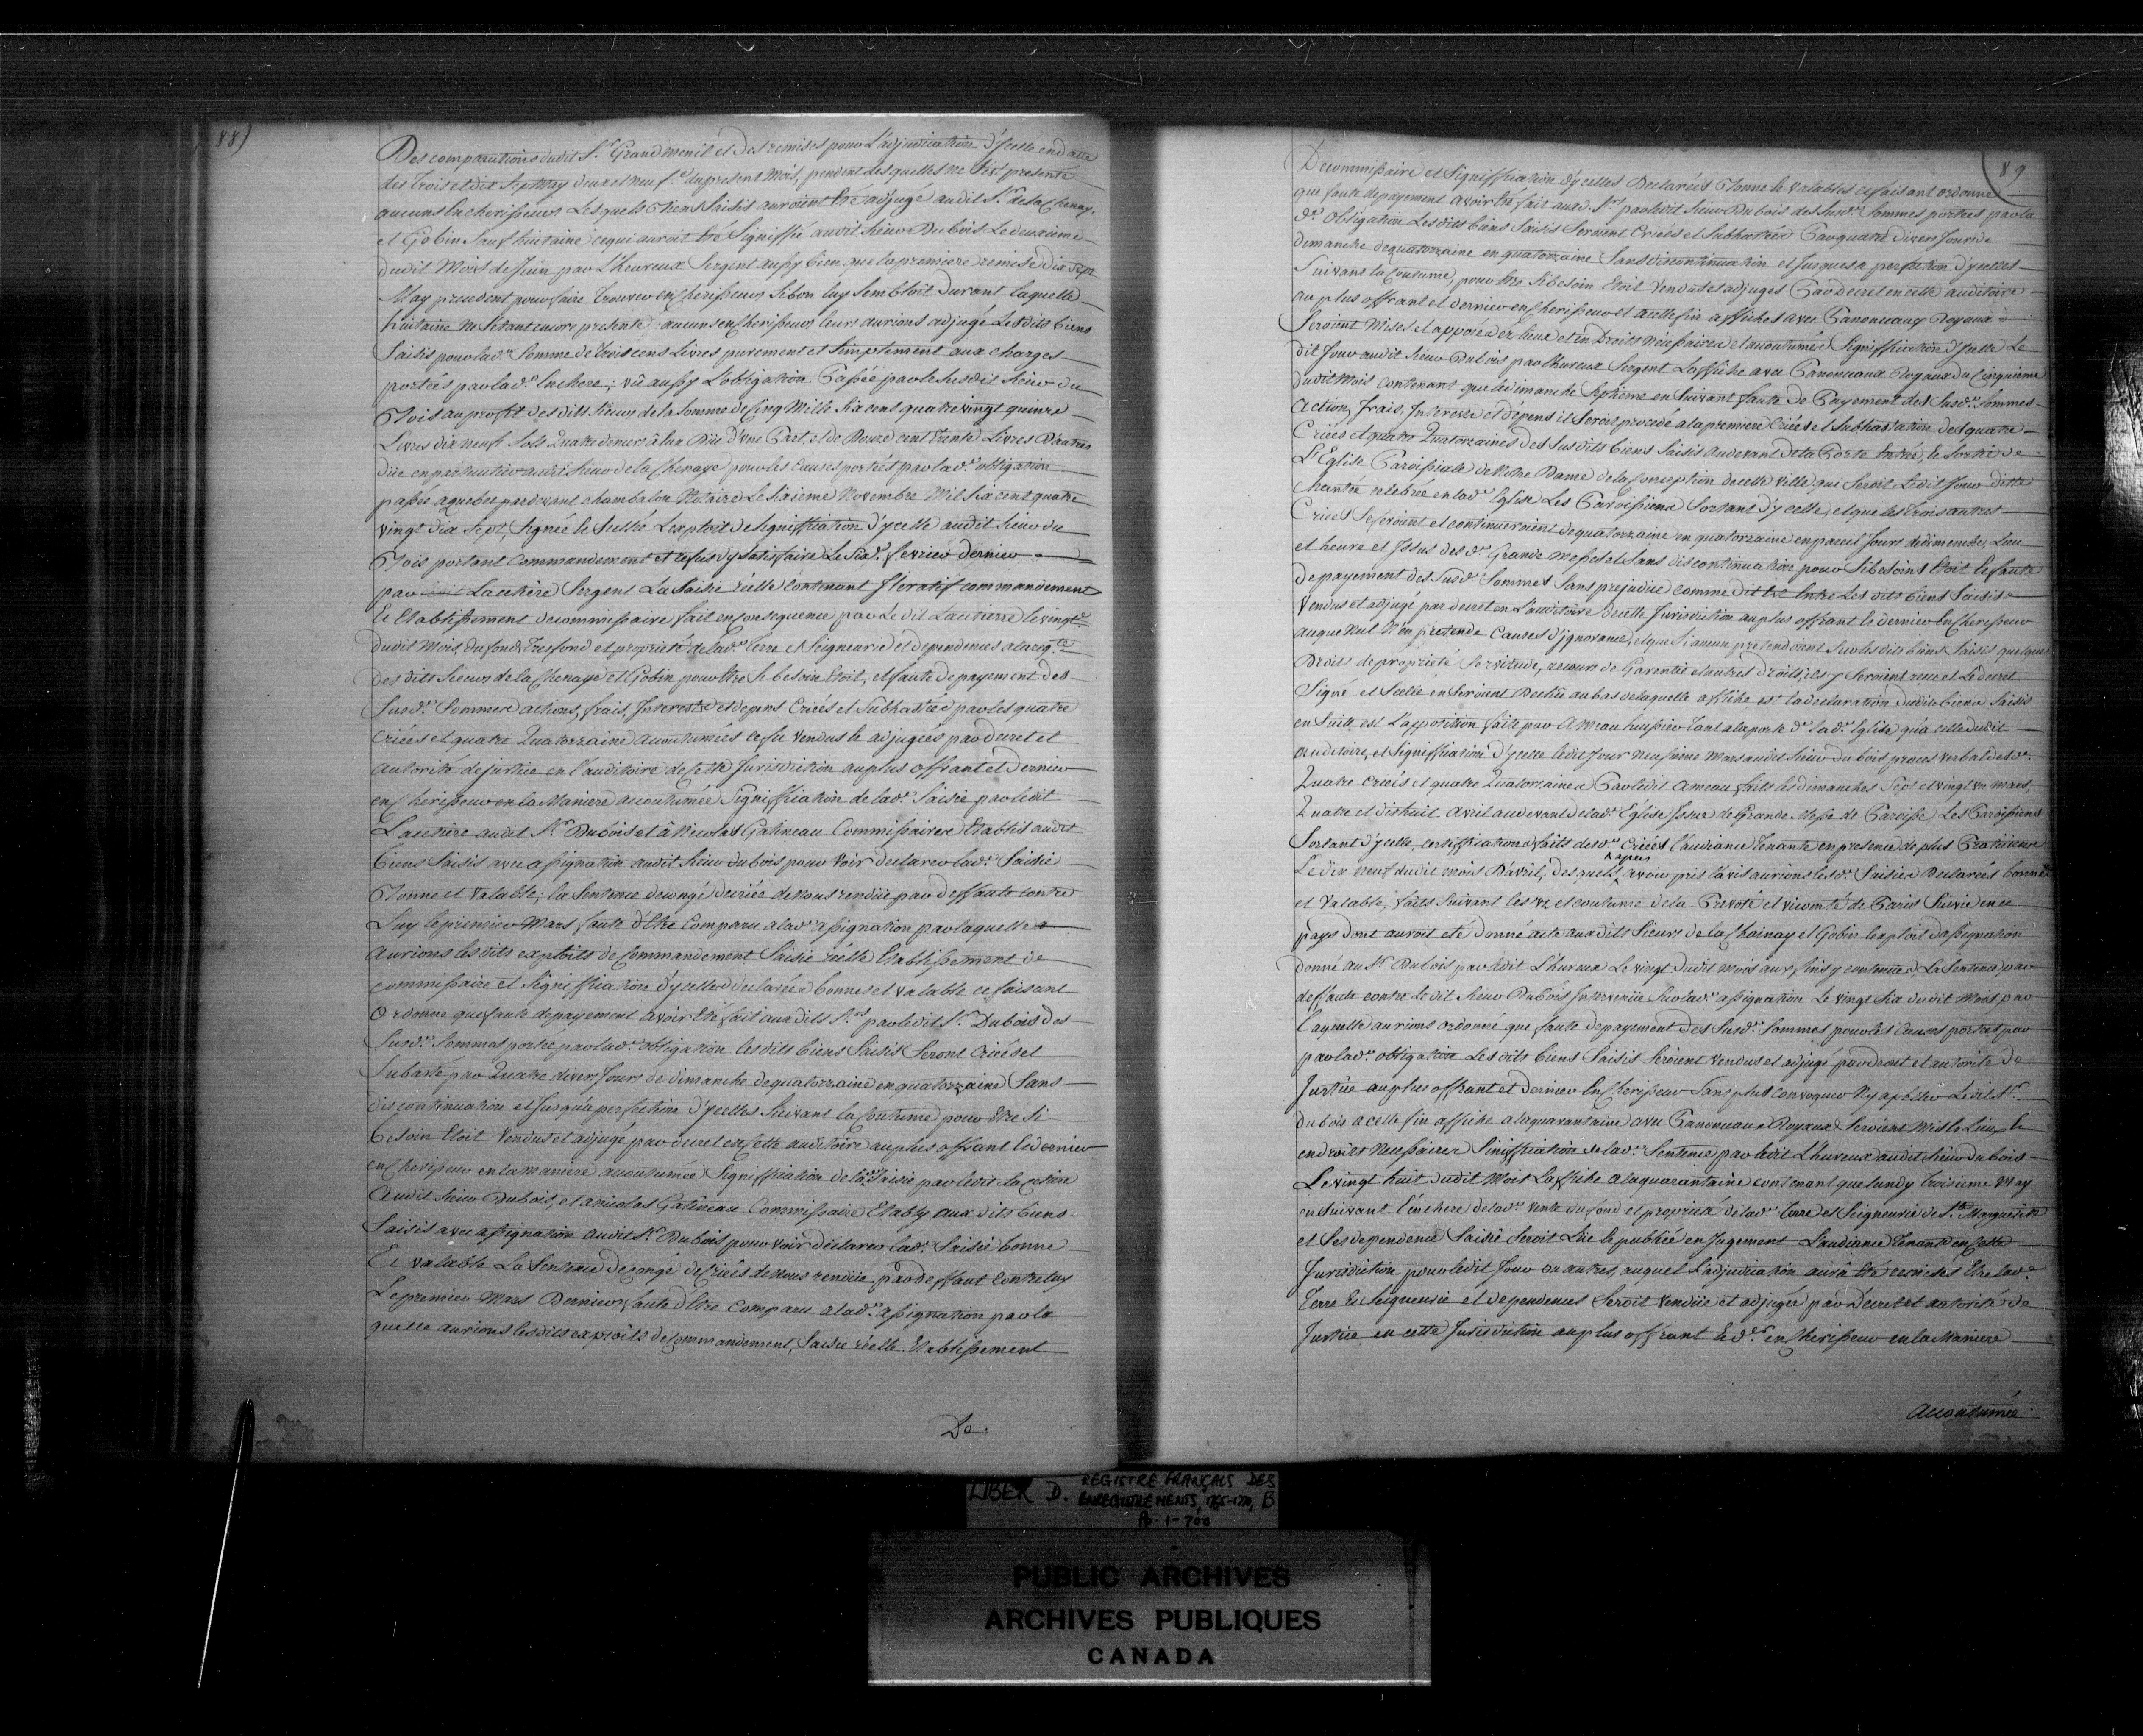 88)
Des comparutions dudit Sr. Grandmenil et des remises pour L'adjudication d'Jcelle en datte
des trois et dix Sept May deux et neuf e. du present Mois, pendent Lesquelles ne S'est presenté
aucuns Encherisseurs Lesquels Biens Saisis auroient été adjugé audit Sr. de la Chenay
et Gobin Sauf huitaine cequi auroit été Signiffié audit Sieur Dubois Le deuxieme
dudit Mois de Juin par L'heureux Sergent aussy bien que la premiere remise dix Sept
May precedent pour faire trouver encherisseurs Si bon luy Sembloit durant laquelle
huitaine ne S'étant encore presenté aucuns encherisseurs leurs aurions adjugé Lesdits biens
Saisis pour lade. Somme de trois cens Livres purement et Simplement aux charges
portées par lade. Enchere; vû aussy L'obligation Passée par le Susdit Sieur du
Bois au profit desdits Sieurs de la Somme de Cinq Mille Six cens quatre vingt quinze
Livres dix neuf Sols Quatre deniers à Eux Düe d'une Part, et de Douze cent trente Livres D'autres
düe en particulier audit Sieur de la Chenaye pour les Causes portées par lade. obligation
passée a quebec pardevant Chambalon Notaire Le Sixieme Novembre Mil Six cent quatre
vingt Dix Sept, Signée et Sellée L'exploit de Signiffication d'ycelle audit Sieur du
Bois portant Commandement et refus d'y Satisfaire Le Six d. fevrier dernier
par Lacetière Sergent La Saisie réelle Contenant Jteratif commandement
Et Etablissement de commissaire fait en Consequence par Le dit Lacetierre le vingt e
dudit Mois, du fond, Tresfond et proprieté de lade. Terre et Seigneurie et dependences a la rqte.
des dits Sieurs de la Chenaye et Gobin pour être Si besoin étoit, et faute de payement des
Susde. Sommes actions, frais, Jnterests et depens Criées et Subhastées par les quatre
Criées et quatre Quatorzaine accoutumées ce fu vendus et adjugées par decret et
autorité de justice en l'auditoire de Cette Jurisdiction au plus offrant et dernier
encherisseur en la Maniere accoutumée Signiffication de lade. Saisie par ledit
Lacetiere audit Sr. Dubois et à Nicolas Gatineau Commissaire Etablis audit
biens Saisis avec assignation audit Sieur dubois pour voir declarer lade. Saisie
Bonne et Valable; la Sentence de congé de criée de Nous rendüe par deffaute contre
Luy le premier Mars faute d'être Comparu a lade. assignation par laquelle
aurions lesdits exploits de Commandement Saisie réelle Etablissement de
commissaire et Signiffication d'ycelles declarées bonnes et valable ce faisant
Ordonne que faute de payement avoir été fait auxdits Srs. par ledit Sr. Dubois des
Susde. Sommes portée par lade. obligation lesdits biens Saisis Seront Criées et
Subasté par Quatre divers Jours de dimanche de quatorzaine en quatorzaine Sans
discontinuation et Jusqu'a perfection d'ycelles Suivant la Coutume, pour être Si
besoin étoit Vendus et adjugé par decret en Cette auditoire au plus offrant et dernier
encherisseur en la maniere accoutumée Signiffication de lade. Saisie par ledit Lacetiere
audit Sieur Dubois, et a nicolas Gatineau Commissaire Etably aux dits biens
Saisis avec assignation audit Sr. Dubois pour voir declarer lade. Saisie bonne
Et valable La Sentence de congé de Criées de nous rendüe par deffaut Contre luy
Le premier Mars Dernier, faute d'être Comparu a lade. assignation par la
quelle aurions lesdits exploits de Commandement, Saisie réelle Etablissement
De.
89
De commissaire et Signiffication d'ycelles Declarées Bonne et valables ce faisant ordonne
que faute de payement avoir été fait auxd. Srs. par ledit Sieur Dubois des Susde. Sommes portées par la
de. Obligation Les dits biens Saisis Seroient Criées et Subhastées Par quatre divers Jours de
dimanche de quatorzaine en quatorzaine Sans discontinuation et Jusques a perfection d'ycelles
Suivant la Coutume, pour être Si besoin étoit Vendus et adjugés Par Decret en cette auditoire
au plus offrant et dernier encherisseur et a cette fin affiches avec Panonceaux Royaux
Seroient Mises et apposées és Lieux et en Droits necessaires et accoutumés Signiffication d'Jcelle Le
dit Jour audit Sieur Dubois par Lhureux Sergent L'affiche avec Panonceaux Royaux du Cinquieme
dudit Mois contenant que le dimanche Septieme en Suivant faute de Payement des Susde. Sommes
Action, frais, Jnterests et depens il Seroit procedé a la premiere Criée et Subhastation des quatre
Criées et quatre Quatorzaines des Susdits biens Saisis au devant de la Porte Entrée, et Sortie de
L'Eglise Paroissiale de Notre Dame de la Conception de cette ville qui Seroit Ledit Jour dite
chantée celebrée en lade. Eglise Les Paroissiens Sortant d'ycelle, et que les trois autres
Criées Se feroient et continueroient de quatorzaine en quatorzaine en pareil Jours de dimenche, Lieu
et heure et Jssus des de. Grande Messes et Sans discontinuation pour Si besoins étoit et faute
de payement des Susde. Sommes Sans prejudice comme dit est Entre Les dits biens Saisis
Vendus et adjugé par decret en L'auditoire de cette Jurisdiction au plus offrant le dernier Encherisseur
a ce que Nul N'en pretende Causes d'Jgnorance, et que Si aucun pretendoient Sur lesdits biens Saisis quelques
Droits de proprieté Servitude, recours de Garentie et autres droits, ils y Seroient reçu et Le decret
Signé et Scellé en Seroient Dechu au bas de laquelle affiche est la declaration dudit biens Saisis
en Suitte est L'apposition faite par Ameau huissier tant a la porte de lade. Eglise qu'a celle dudit
auditoire, et Signiffication d'ycelle ledit Jour Neufieme Mars audit Sieur dubois procès verbal desde.
Quatre criées et quatre Quatorzaines Par ledit Ameau faits les dimanches Sept et vingt un Mars,
Quatre et dixhuit Avril au devant de lade. Eglise Jssue de Grande Messe de Paroisse, Les Paroissiens
Sortant d'ycelle, certiffications faits desde. Criées l'audiance Tenante en presence de plus Praticiens
Le dix neuf dudit mois D'avril, desquels ^après avoir pris l'avis aurions lesde. Saisies Declarées bonnes
et Valable, faits Suivant les us et coutume de la Prevoté et vicomté de Paris Suivie en ce
pays dont auroit été donné acte auxdits Sieurs de la Chainay et Gobin L'exploit d'assignation
donné au Sr. Dubois par ledit L'hureux Le vingt dudit mois aux fins y contenües, La Sentence par
deffaute contre Ledit Sieur Dubois Intervenüe Sur lade. assignation Le vingt Six dudit Mois par
Laquelle aurions ordonné que faute de payement des Susde. Sommes pour les Causes portées par
par lade. obligation Les dits biens Saisis Seroient vendus et adjugé par decret et autorité de
Justice au plus offrant et dernier Encherisseur Sans plus Convoquer Ny apeller Ledit Sr.
dubois a cette fin affiche a la quarantaine avec Panonceaux Royaux Seroient Mis és Lieux et
endroits Necessaires Siniffication de lade. Sentence par ledit L'hureux audit Sieur dubois
Le vingt huit dudit Mois L'affiche a la quarantaine contenant que lundy troisieme May
en Suivant l'enchere de lade. vente du fond et proprieté de lade. terre et Seigneurie de Ste. Marguerite
et Ses dependence Saisie Seroit Lüe et publiée en Jugement L'audiance Tenante en Cette
Jurisdiction pour ledit Jour ou autres, auquel L'adjudication aura été remises Etre lade.
Terre Et Seigneurie et dependences Seroit Vendüe et adjugée par Decret et autorité de
Justice en cette Jurisdiction au plus offrant et dr. encherisseur en la Maniere
Accoutumée
LIBER D. REGISTRE FRANÇAIS DES
ENREGISTREMENTS, 1765-1770, B
Pp. 1-700
PUBLIC ARCHIVES
ARCHIVES PUBLIQUES
CANADA